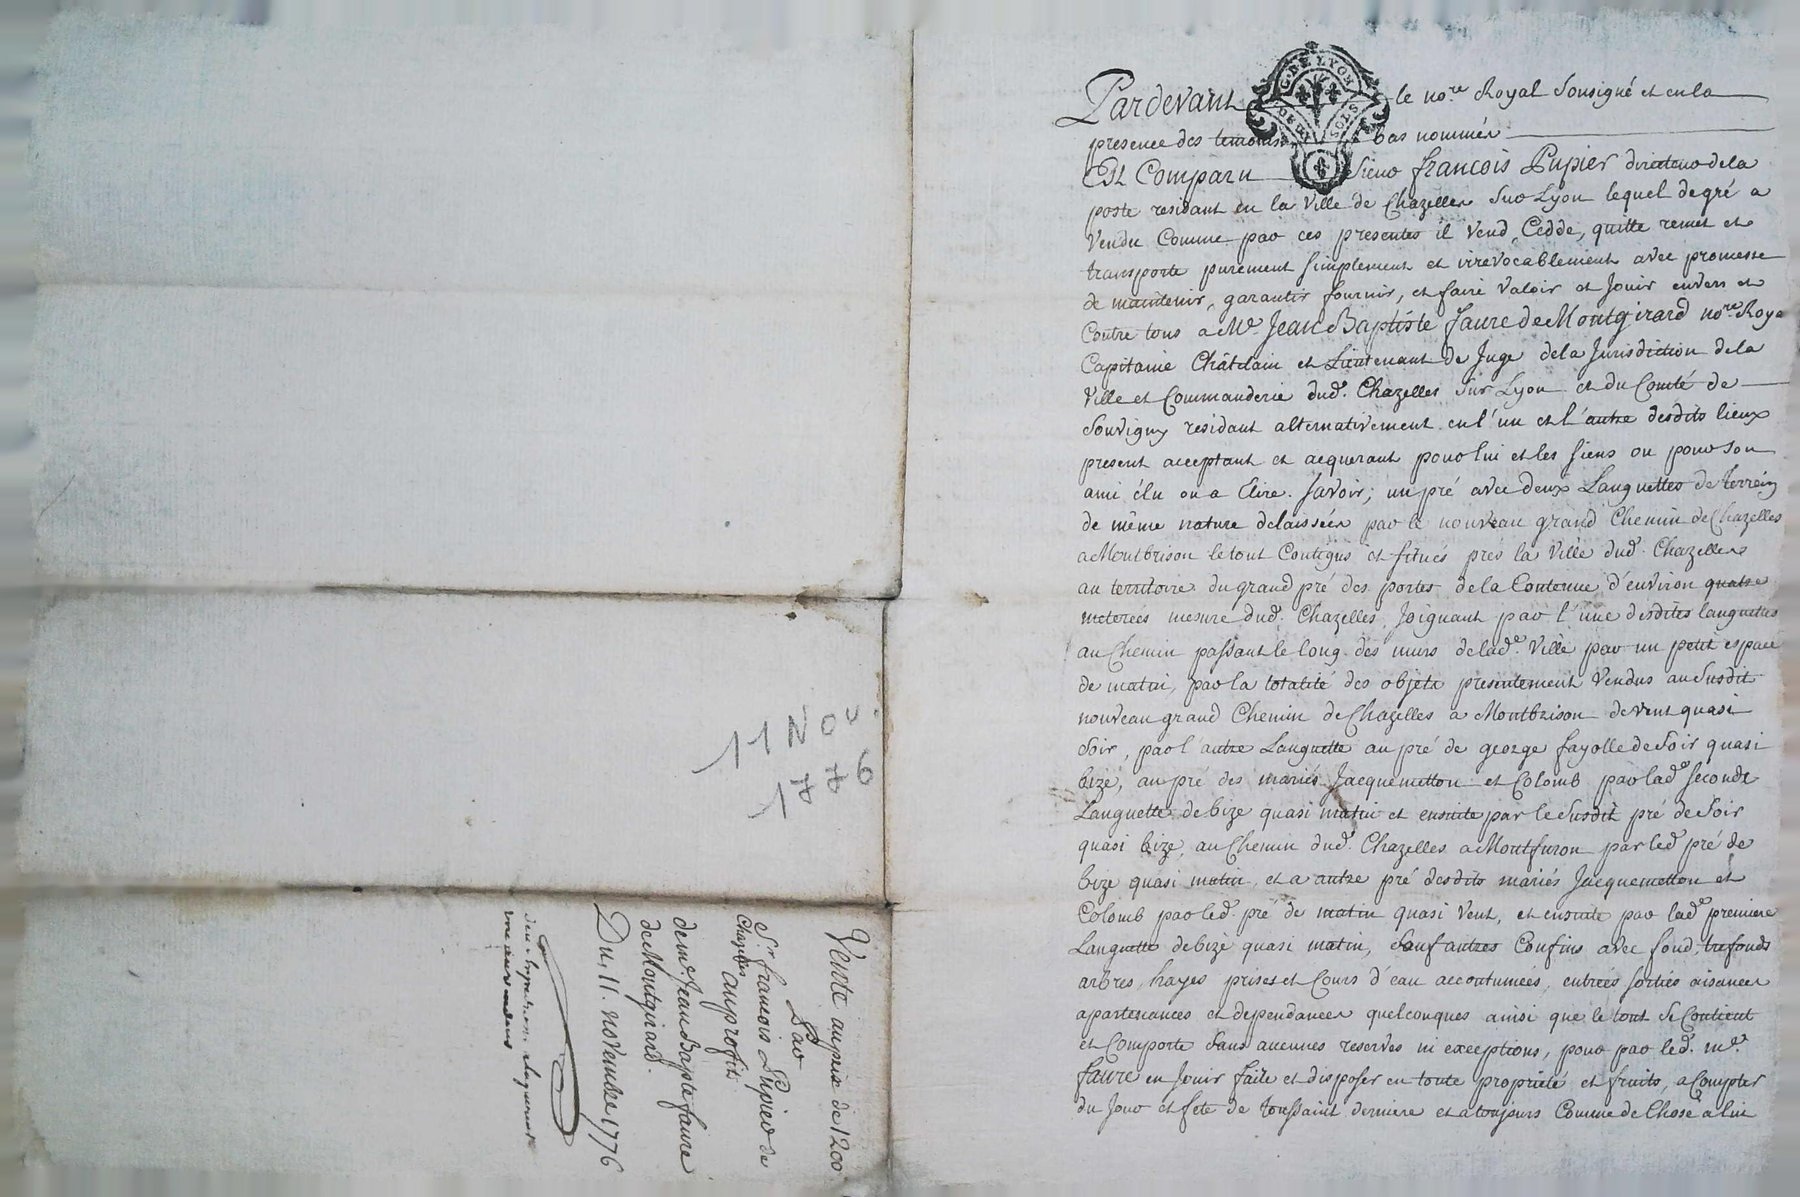 G. DE LYON
DEUX SOLS
Pardevant le no.re Royal Sousigné et en la
presence des temoins bas nommés
Est Comparu Sieur francois Pupier directeur de la
poste residant en la Ville de Chazelles Sur Lyon lequel de gré a
Vendu Comme par ces presentes il Vend, Cedde, quitte remet et
transporte purement simplement et irrevocablement avec promesse
de maintenir, garantir fournir, et faire Valoir et Jouir envers et
Contre tous a Me. Jean Baptiste faure de Montgirard no.re Roya
Capitaine Châtelain et Lieutenant de Juge de la Jurisdiction de la
Ville et Commanderie dud. Chazelles Sur Lyon et du Comté de
Souvigny residant alternativement en l'un et l'autre desdits lieux
present acceptant et acquerant pour lui et les siens ou pour Son
ami élu ou a Elire. Savoir; un pré avec deux Languettes de terrein
de même nature delaissées par le nouveau grand Chemin de Chazelles
a Montbrison le tout Contigus et situés prés la Ville dud. Chazelles
au territoire du grand pré des portes de la Contenue d'environ quatre
meterées mesure dud. Chazelles, Joignant par l'une desdites languettes
au Chemin passant le long des murs de lad.e Ville par un petit espace
de matin, par la totalité des objets presentement Vendus au Susdit
nouveau grand Chemin de Chazelles a Montbrison de vent quasi
Soir, par l'autre Languette au pré de george fayolle de Soir quasi
bize, au pré des mariés Jacquemetton et Colomb par lad.e Seconde
Languette de bize quasi matin et ensuite par le Susdit pré de Soir
quasi bize, au Chemin dud. Chazelles a Montfuron par led. pré de
bize quasi matin, et a autre pré desdits mariés Jacquemetton et
Colomb par led. pré de matin quasi Vent, et ensuite par lad.e premiere
Languette de bize quasi matin, Sauf autres Confins avec fond, trefonds
arbres, hayes prises et Cours d'eau accoutumées, entrées sorties aisances
apartenances et dependances quelconques ainsi que le tout Se Contient
et Comporte Sans aucunes reserves ni exceptions, pour par led. me.
faure en Jouir faire et disposer en toute propriété et fruits, a Compter
du Jour et fête de toussaint derniere et a toujours Comme de Chose a lui
11 Nov.
1776
Vente au prix de 1200
Par
Sr. francois Pupier de
Chazelles au profit
de me. Jean Baptiste faure
de Montgirard.
Du 11. novembre 1776